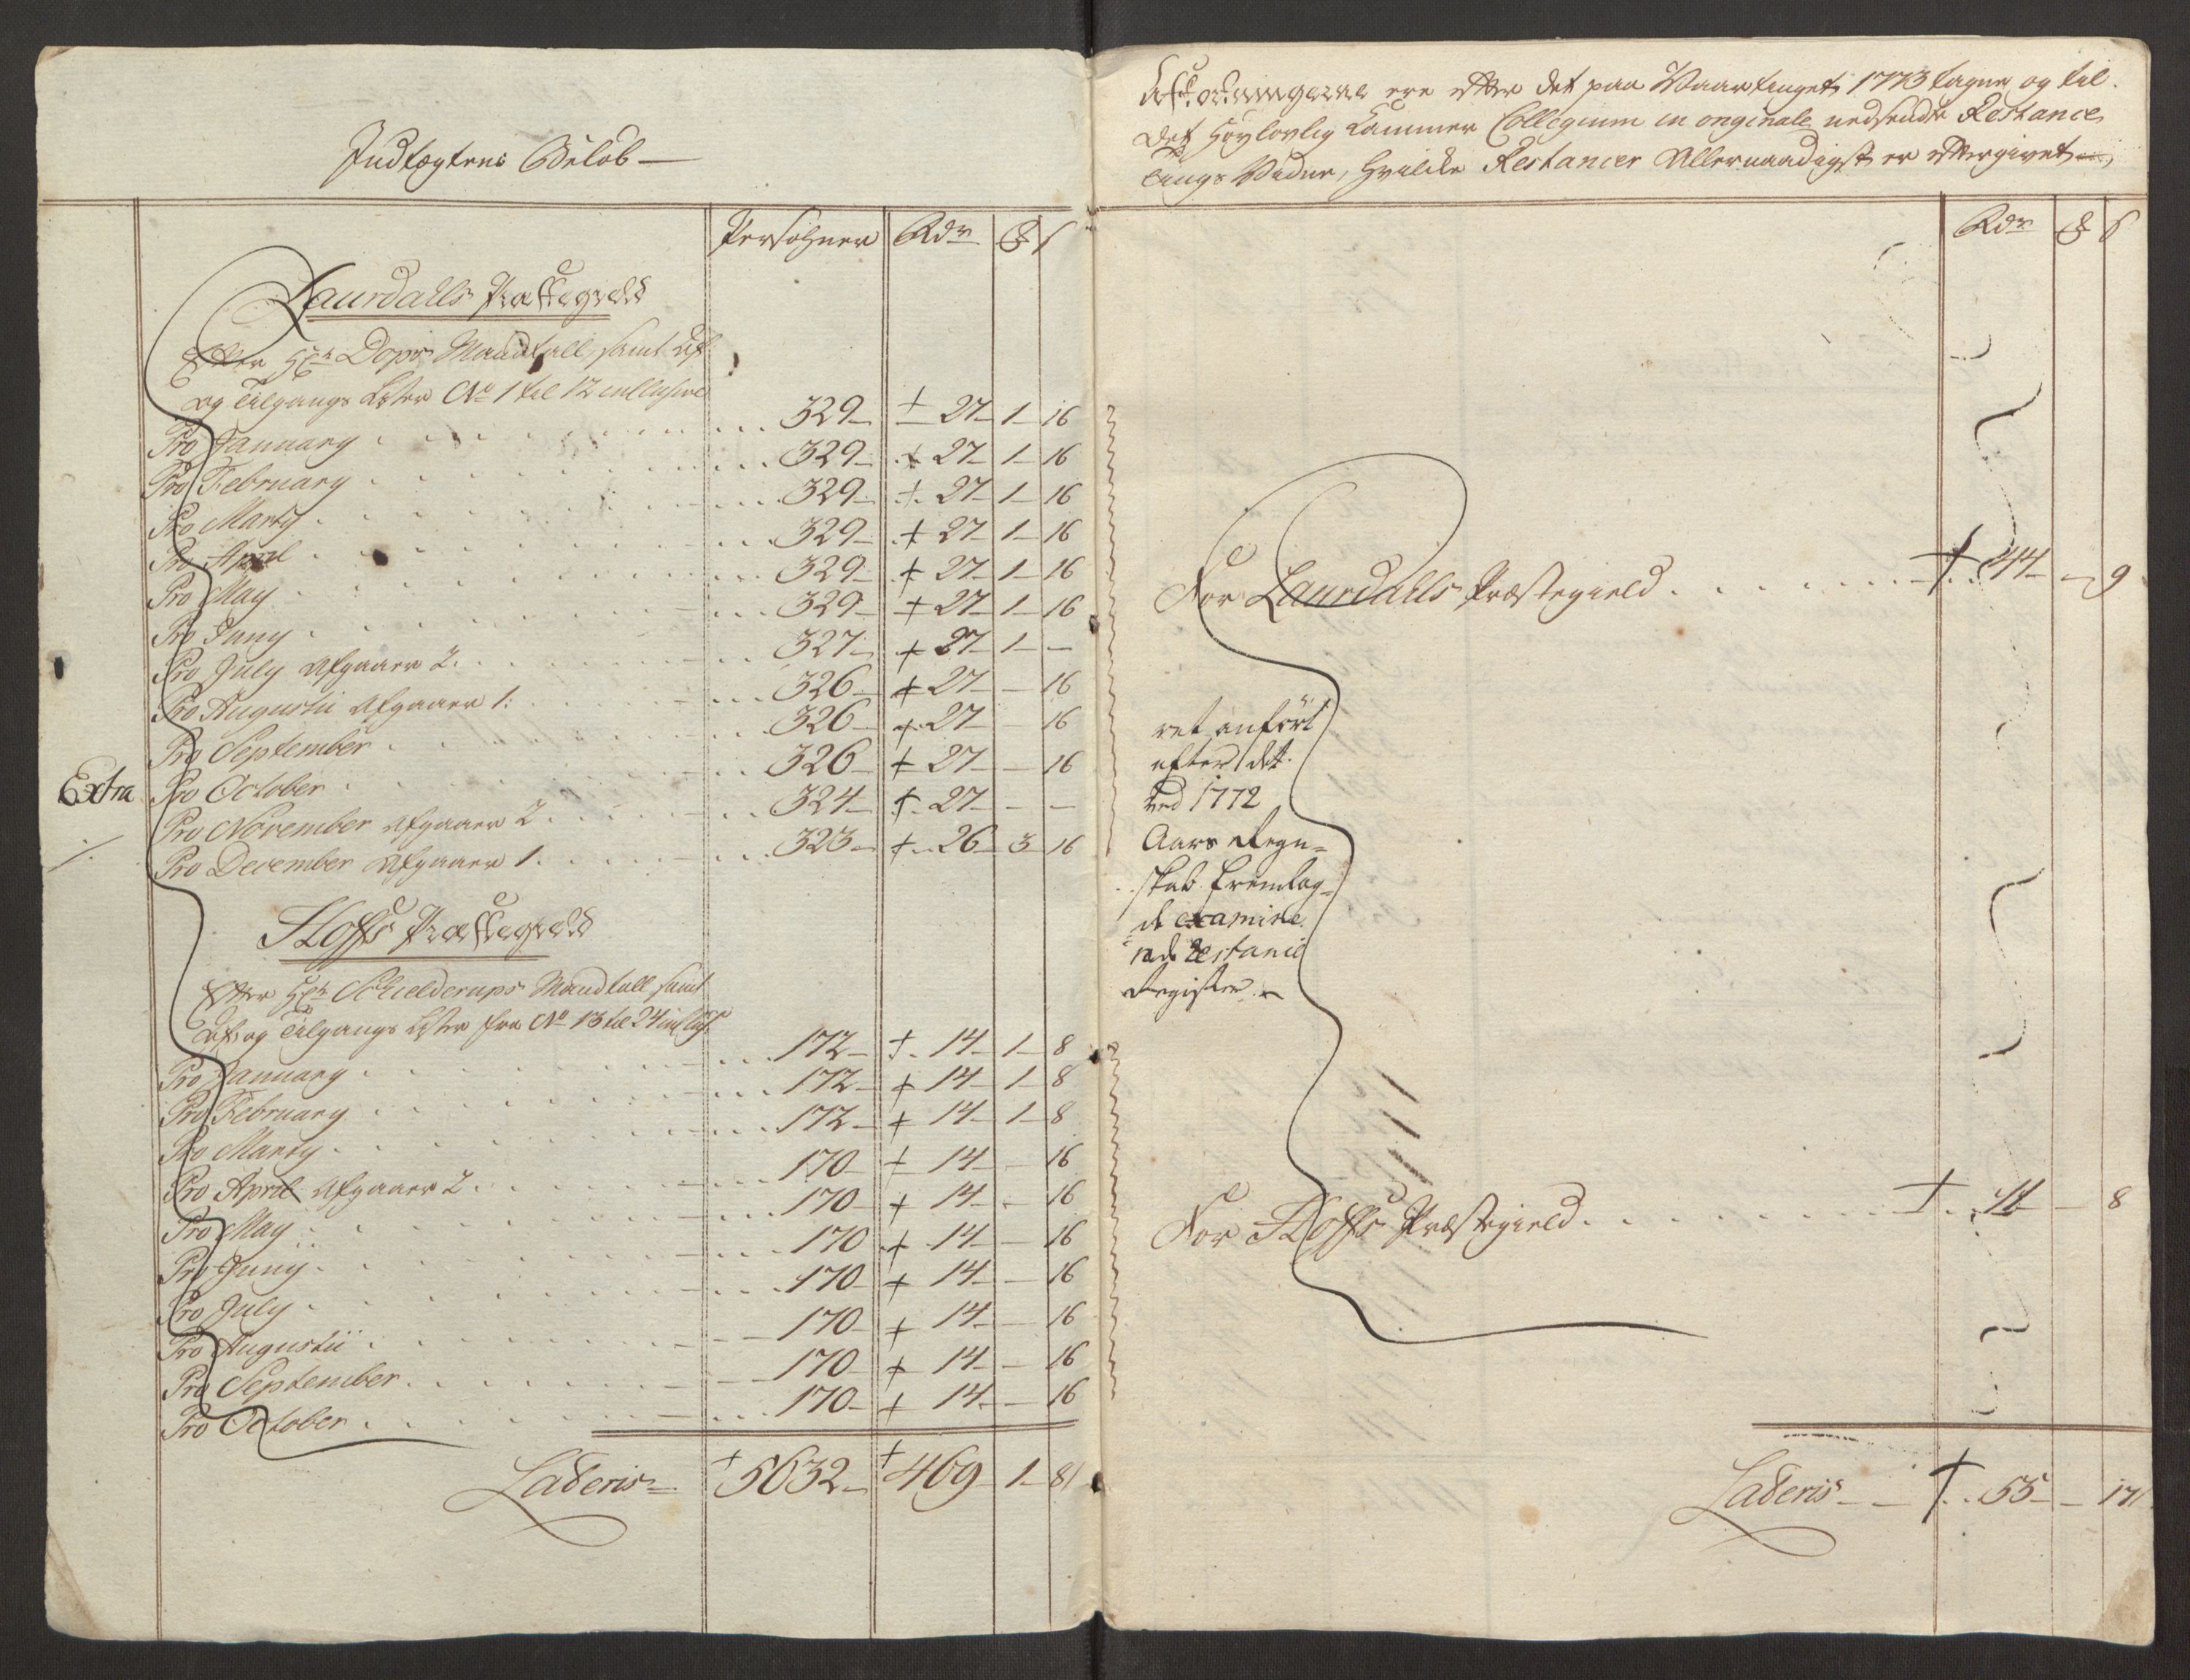 Indtægtens Beløb
Persohner Rdr ß
Laurdalls Præstegield
Efter Hr Dops Mandtall, samt Af
og Tilgangs Lister No 1 til 12 inclusive
Pro January . . . 329 27 1 16
Pro February . . . 329 27 1 16
Pro Marty . . . 329 27 1 16
Pro April . . . 329 27 1 16
Pro May . . . 329 27 1 16
Pro Juny . . . 329 27 1 16
Pro July Afgaaer 2. . . . 327 27 1 –
Pro Augustii Afgaaer 1: . . . 326 27 – 16
Pro September . . . 326 27 – 16
Pro October . . . 326 27 – 16
Extra
Pro November Afgaaer 2 . . . 324 27 – –
Pro December Afgaaer 1. . . . 323 26 3 16
Hoffs Præstegield
Efter Hr Schielderups Mandtall samt
Af og Tilgangs Lister fra No 13 til 24 inclus.
Pro January . . . 172 14 1 8
Pro February . . . 172 14 1 8
Pro Marty . . . 172 14 1 8
Pro April Afgaaer 2 . . . 170 14 – 16
Pro May . . . 170 14 – 16
Pro Juny . . . 170 14 – 16
Pro July . . . 170 14 – 16
Pro Augustii . . . 170 14 – 16
Pro September . . . 170 14 – 16
Pro October . . . 170 14 – 16
Lateris 5632 469 1 8
ere efter det paa Vaartinget 1773 tagne og til
det Høylovlig Kammer Collegium in originale nedsendte Restance
Tings Vidne, hvilcke Restancer Allernaadigst er eftergivet
Rdr ß
For Laurdalls Præstegield . . . 44 – 9
ret anført
efter det
ved 1772
Aars Regn=
skab fremlag=
de examine
rede Restance
Register
For Hoffs Præstegield . . . 11 – 8
Lateris 55 – 17